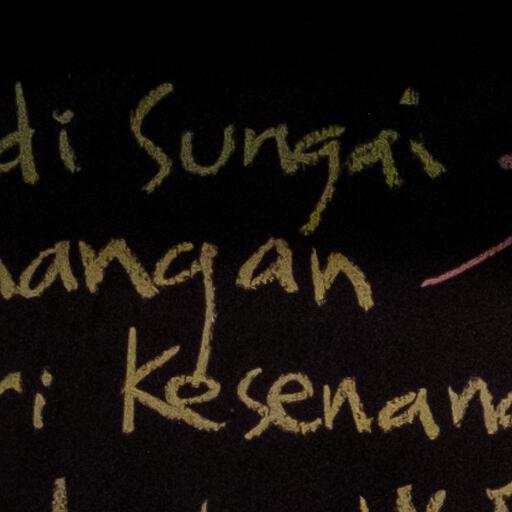 di Sungai
nangan
ri Kesenang